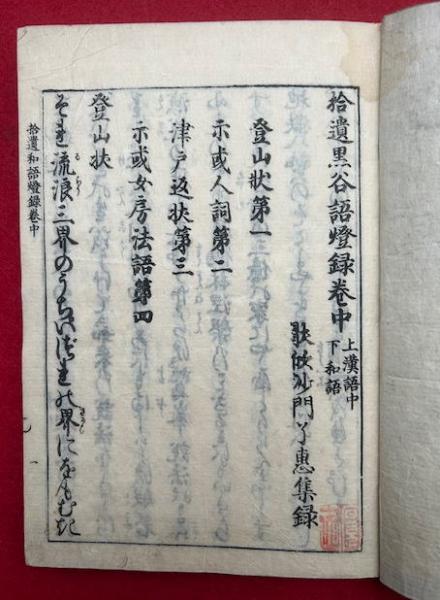 拾遺黒谷語燈録巻中
上漢語中
下和語
猒欣沙門了惠集録
登山状第一
示或人詞第二
津戸返状第三
示或女房法語第四
登山状
それ流浪三界のうちいづれの界にをもむき
拾遺和語燈録巻中
一